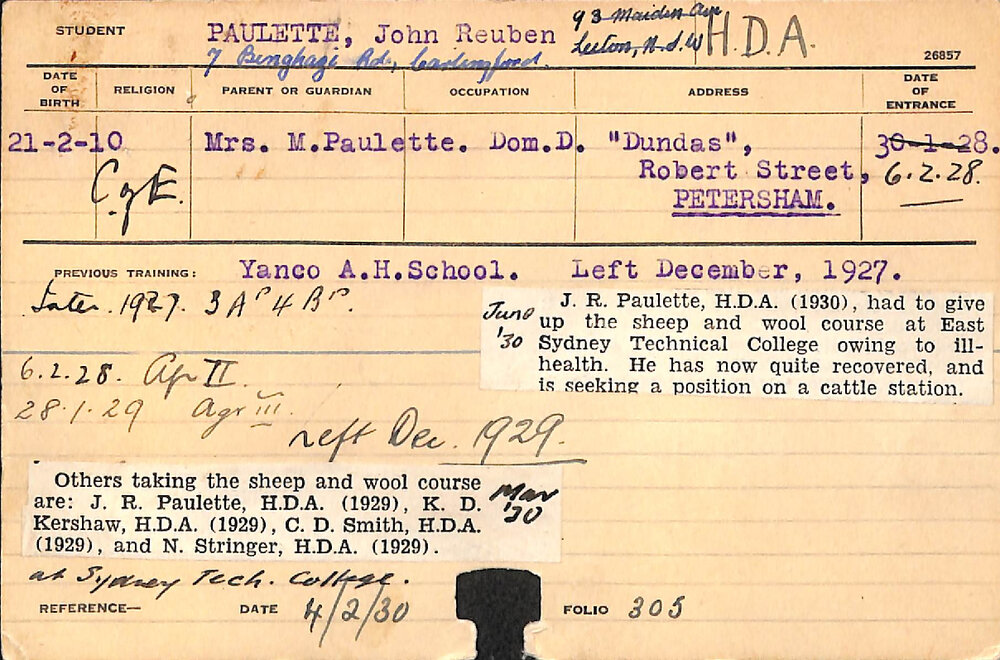 STUDENT PAULETTE, John Reuben 93 Maiden Ave H.D.A.
Leeton, N.S.W
7 Benghazi Rd., Carlingford.
26857
DATE OF BIRTH RELIGION PARENT OR GUARDIAN OCCUPATION ADDRESS DATE OF ENTRANCE
21-2-10 Mrs. M.Paulette. Dom.D. "Dundas", 30-1-28.
C of E. Robert Street, 6.2.28.
PETERSHAM.
PREVIOUS TRAINING: Yanco A.H.School. Left December, 1927.
Inter. 1927. 3 A's 4 B's.
June '30
J. R. Paulette, H.D.A. (1930), had to give
up the sheep and wool course at East
Sydney Technical College owing to ill-
health. He has now quite recovered, and
is seeking a position on a cattle station.
6.2.28. Agr II
28.1.29 Agr III.
Left Dec. 1929.
Others taking the sheep and wool course
are: J. R. Paulette, H.D.A. (1929), K. D.
Kershaw, H.D.A. (1929), C. D. Smith, H.D.A.
(1929), and N. Stringer, H.D.A. (1929).
Mar '30
at Sydney Tech. College.
REFERENCE— DATE 4/2/30 FOLIO 305